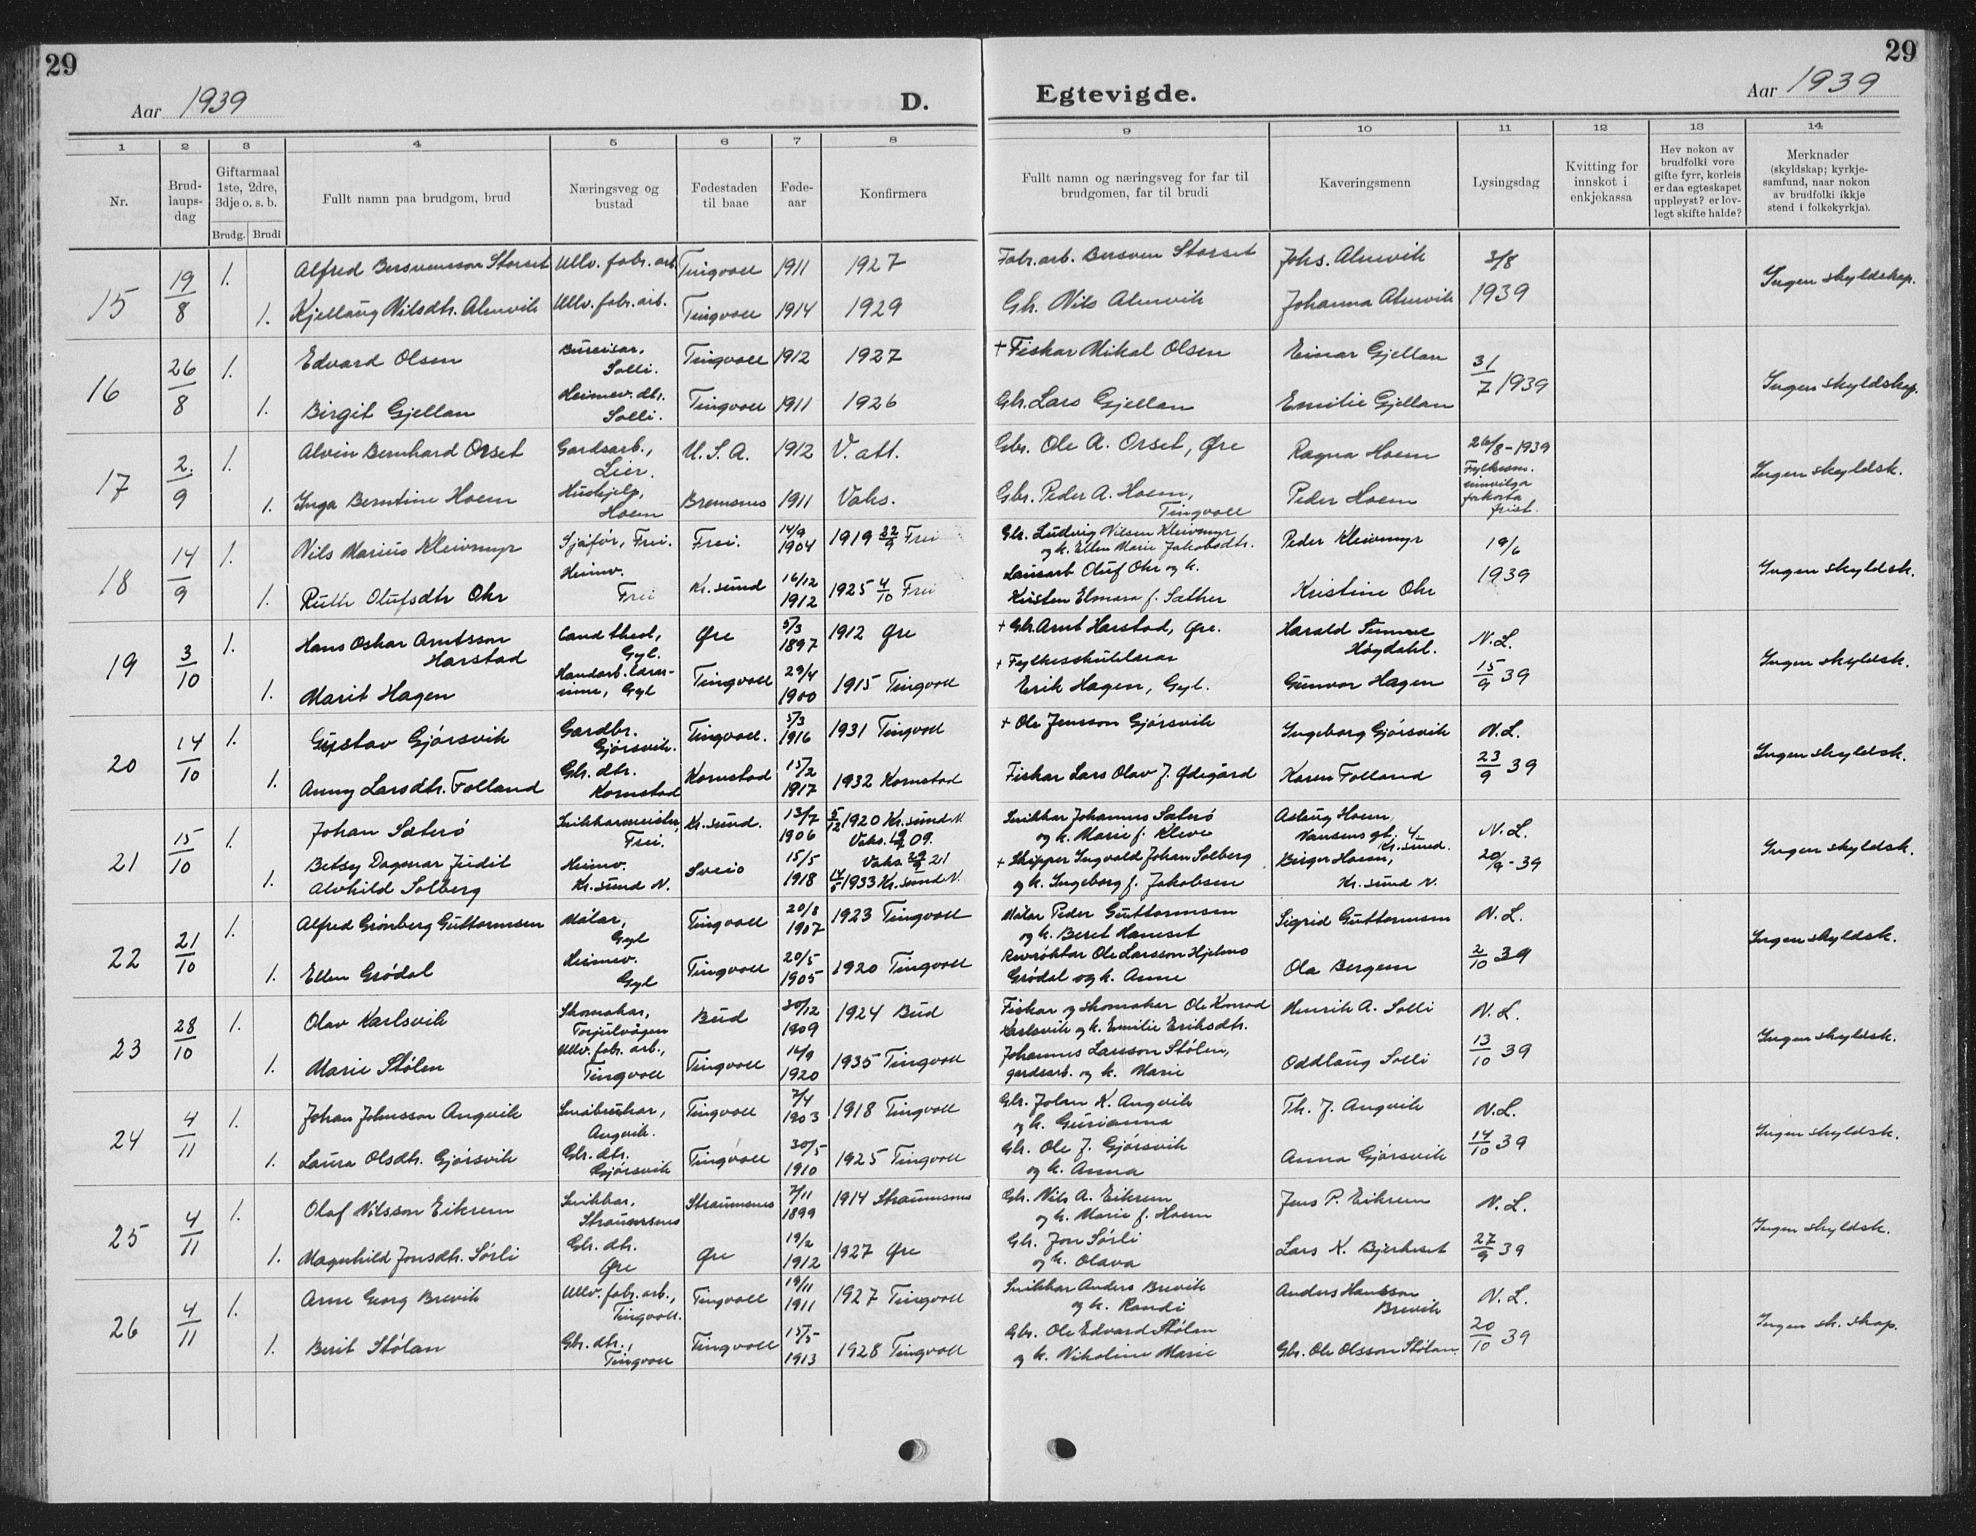 29
Aar 1939
D.
Egtevigde.
Aar 1939
29
1 2 3 4 5 6 7 8 9 10 11 12 13 14
Nr.
Brud-
laups-
dag
Giftarmaal
1ste, 2dre,
3dje o. s. b.
Brudg. Brudi
Fullt namn paa brudgom, brud
Næringsveg og
bustad
Fødestaden
til baae
Føde-
aar
Konfirmera
Fullt namn og næringsveg for far til
brudgomen, far til brudi
Kaveringsmenn
Lysingsdag
Kvitting for
innskot i
enkjekassa
Hev nokon av
brudfolki vore
gifte fyrr, korleis
er daa egteskapet
uppløyst? er lov-
legt skifte halde?
Merknader
(skyldskap; kyrkje-
samfund, naar nokon
av brudfolki ikkje
stend i folkekyrkja).
15 19/8 1. Alfred Bersvensson Storset Ullv. fabr. arb. Tingvoll 1911 1927 Fabr. arb. Bersven Storset Johs. Almvik 3/8
1. Kjellaug Nilsdtr. Almvik Ullv. fabr. arb. Tingvoll 1914 1929 Gbr. Nils Almvik Johanna Almvik 1939 Ingen skyldskap.
16 26/8 1. Edvard Olsen Bureisar, Solli. Tingvoll 1912 1927 + Fiskar Mikal Olsen Einar Gjellan 31/7 1939
1. Birgit Gjellan Heimev. dtr. Solli. Tingvoll 1911 1926 Gbr. Lars Gjellan Emilie Gjellan Ingen skyldskap.
17 2/9 1. Alvin Bernhard Orset Gardsarb., Lier. U.S.A. 1912 V. att. Gbr. Ole A. Orset, Øre Ragna Hoem 26/8-1939
1. Inga Berntine Hoem Hushjelp, Hoem Bremsnes 1911 Vaks. Gbr. Peder A. Hoem, Tingvoll Peder Hoem forkorta frist. Ingen skyldsk.
18 14/9 1. Nils Marius Kleivmyr Sjåfør, Frei. Frei. 14/9 1904 1919 22/9 Frei Gbr. Ludvig Nilsen Kleivmyr og k. Ellen Marie Jakobsdtr. Peder Kleivmyr 19/6
1. Ruth Olufsdtr Ohr Heimv. Frei Kr.sund 16/12 1912 1925 4/10 Frei Lausarb Oluf Ohr og k. Kristen Elmara f. Sæther Kristine Ohr 1939 Ingen skyldsk.
19 3/10 1. Hans Oskar Arntsson Harstad Cand theol, Gyl. Øre 5/3 1897 1912 Øre + Gbr. Arnt Harstad, Øre. Harald Høgdahl. N.L.
1. Marit Hagen Handarb. lærer-inne, Gyl Tingvoll 29/4 1900 1915 Tingvoll + Fylkesskulelærar Erik Hagen, Gyl. Gunvor Hagen 15/9 39 Ingen skyldsk.
20 14/10 1. Gustav Gjørsvik Gardbr. Gjørsvik. Tingvoll. 5/3 1916 1931 Tingvoll + Ole Jensson Gjørsvik Ingeborg Gjørsvik N.L.
1. Anny Larsdtr. Folland Gbr. dtr. Kornstad Kornstad 15/2 1917 1932 Kornstad Fiskar Lars Olav J. Ødegård Karen Folland 23/9 39 Ingen skyldsk.
21 15/10 1. Johan Sæterø Snikkarmeister, Frei. Kr.sund. 13/7 1906 5/12 1920 Kr.sund N. Snikkar Johannes Sæterø og k. Marie f. Kleve Aslaug Hoem, Nansens gt. 4 Kr.sund. N.L.
1. Betsy Dagmar Judit Alvhild Solberg Heimv. Kr.sund N. Sveio 15/5 1918 1933 Kr.sund N. + Skipper Ingvald Johan Solberg og k. Ingeborg f. Jakobsen Birger Hoem, Kr.sund N. 20/9-39 Ingen skyldsk.
22 21/10 1. Alfred Grønberg Guttormsen Målar, Gyl Tingvoll 20/8 1907 1923 Tingvoll Målar Peder Guttormsen og k. Beret Hanset Sigrid Guttormsen N.L.
1. Ellen Grødal Heimev. Gyl Tingvoll 20/5 1905 1920 Tingvoll Revrøktar Ole Larsson Hjelmo Grødal og k. Anne Ola Bergem 2/10 39 Ingen skyldsk.
23 28/10 1. Olav Karlsvik Skomakar, Torjulvågen Bud 30/12 1909 1924 Bud Fiskar og skomakar Ole Konrad Karlsvik og k. Emilie Eriksdtr. Henrik A. Solli N.L.
1. Marie Stølen Ullv. fabr. arb., Tingvoll Tingvoll 14/9 1920 1935 Tingvoll Johannes Larsson Stølen, gardsarb. og k. Marie Oddlaug Solli 13/10 39 Ingen skyldsk.
24 4/11 1. Johan Johnsson Angvik Småbrukar, Angvik. Tingvoll 7/4 1903 1918 Tingvoll Gbr. John K. Angvik og k. Gurianna Th. J. Angvik N.L.
1. Laura Olsdtr. Gjørsvik Gbr. dtr. Gjørsvik Tingvoll 30/5 1910 1925 Tingvoll Gbr. Ole J. Gjørsvik og k. Anna Anna Gjørsvik 14/10 39 Ingen skyldsk.
25 4/11 1. Olaf Nilsson Eikrem Snikkar, Straumsnes Straumsnes 7/11 1899 1914 Straumsnes Gbr. Nils A. Eikrem og k. Marie f. Hoem Jens P. Eikrem N.L.
1. Magnhild Jonsdtr. Sørli Gbr. dtr. Øre Øre 19/2 1912 1927 Øre Gbr. Jon Sørli og k. Olava Lars K. Bjerkeset 27/9 39 Ingen skyldsk.
26 4/11 1. Arne Georg Brevik Ullv. fabr. arb., Tingvoll. Tingvoll 19/11 1911 1927 Tingvoll Snikkar Anders Brevik og k. Randi Anders Hansson Brevik N.L.
1. Berit Stølan Gbr. dtr., Tingvoll Tingvoll 15/5 1913 1928 Tingvoll Gbr. Ole Edvard Stølan og k. Nikoline Marie Gbr. Ole Olsson Stølan. 20/10 39 Ingen sk. skap.